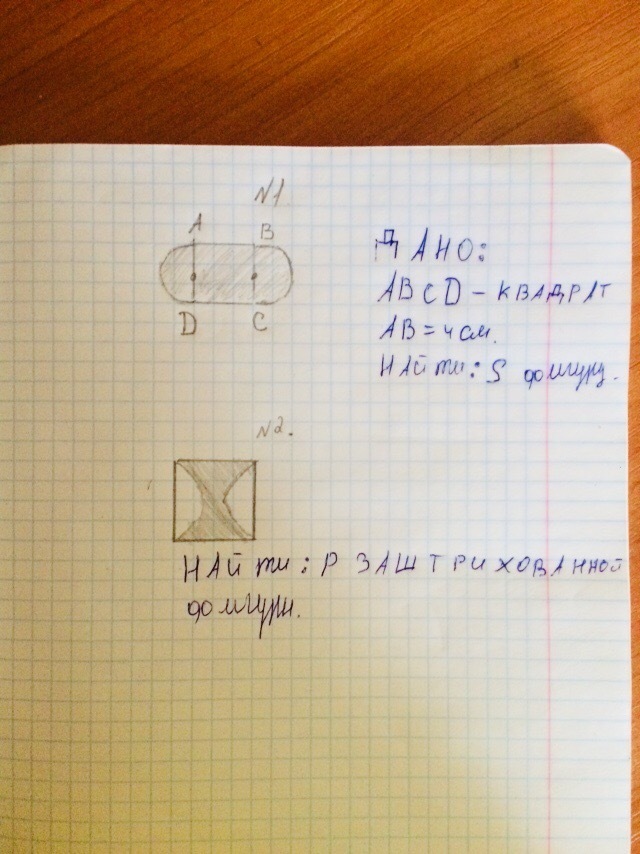 N1
A B
D C
ДАНО:
ABCD – КВАДРАТ
AB = 4 см.
НАЙти: S фигуры.
N2.
НАЙти: P ЗАШТРИХОВАННОЙ
фигуры.